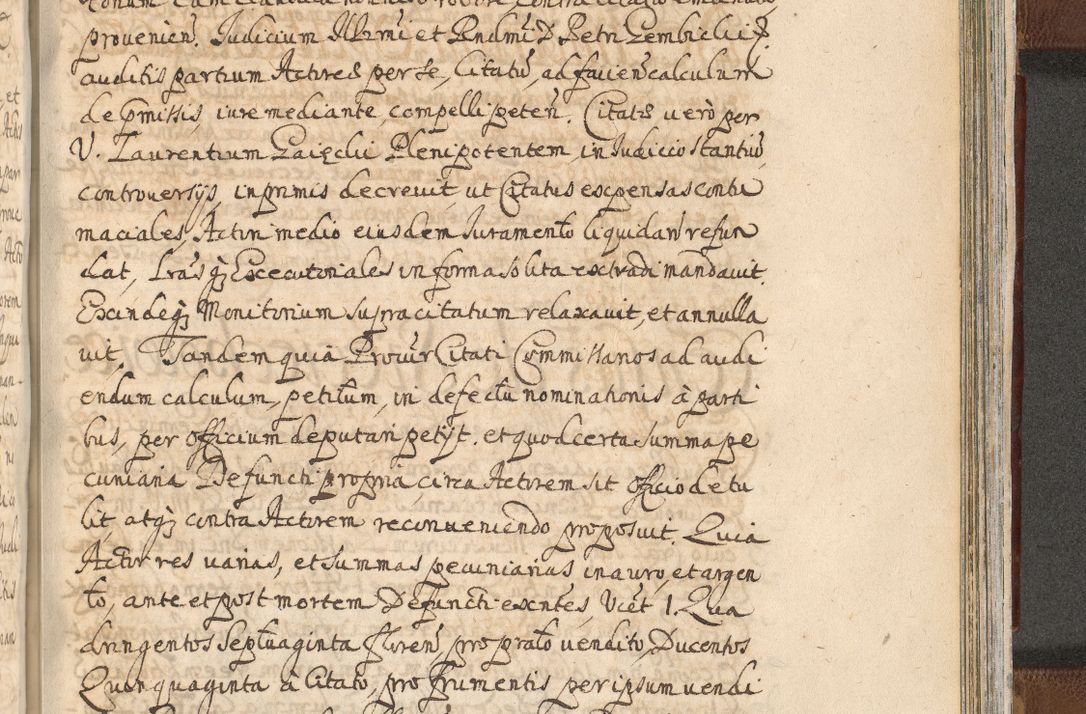 provenien. Judicium Illrmi et Rndmi D. Petri Gembiclii E.
auditis partium Actores per se, Citatū, ad faciend calculum
de pmissis, iure mediante, compelli peteñ. Citats verò per
V. Laurentium Gaięclii Plenipotentem, in Judicio Stantiū,
controversijs, inprimis decrevit, ut Citatus expensas contu
maciales, Actori medio eiusdem Juramento liquidari refun
dat, Lras q; Executoriales in forma solita extradi mandavit.
Exindeq; Monitorium supra citatum relaxavit, et annulla
vit, Tandem quia Procur Citati Commissarios ad audi
endum calculum, petitum, in defectu nominationis à parti
bus, per officium deputari petijt. et quod certa summa pe
cuniaria Defuncti propria, circa Actorem sit officio detu
lit, atq; contra Actorem reconveniendo proposuit. Quia
Actor res varias, et summas pecuniarias in auro, et argen
to, ante et post mortem Defuncti exntes, Vcet 1. Qua
dringentos Septuaginta floren, pro prato vendito, Ducentos
Quinquaginta à Citato, pro frumentis per ipsum vendi